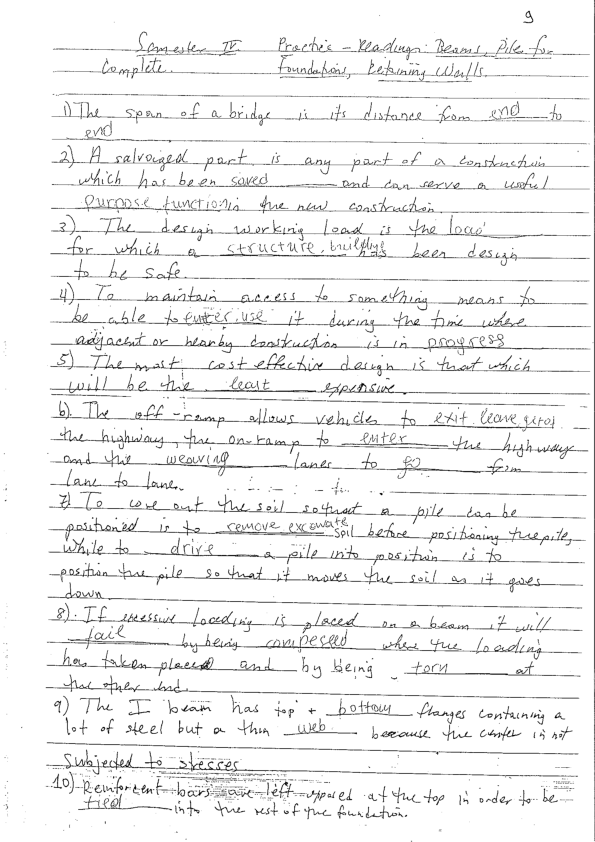 9
Semester IV. Practice - Reading: Beams, Pile for
Complete. Foundations, Retaining Walls.
1) The span of a bridge is its distance from end to
end
2) A salvaiged part is any part of a construction
which has been saved and can serve a useful
purpose function in the new construction
3) The design working load is the load
for which a structure. building has been design
to be safe.
4) To maintain access to something means to
be able to enter. use it during the time where
adjacent or nearby construction is in progress
5) The most cost effective design is that which
will be the least expensive.
6). The off-ramp allows vehicles to exit leave
the highway, the on-ramp to enter the highway
and the weaving lanes to go from
lane to lane.
7) To core out the soil so that a pile can be
positioned is to remove excavate soil before positioning the pile,
while to drive a pile into position is to
position the pile so that it moves the soil as it goes
down.
8). If excessive loading is placed on a beam it will
fail by being compessed where the loading
has taken placed and by being torn at
the other end.
9) The I beam has top + bottom flanges containing a
lot of steel but a thin web because the center is not
Subjected to stresses
10) Reinforcent bars are left exposed at the top in order to be
tied into the rest of the foundation.